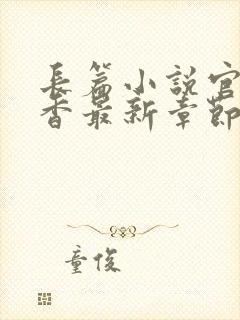 長篇小說官
香最新章節
童俊